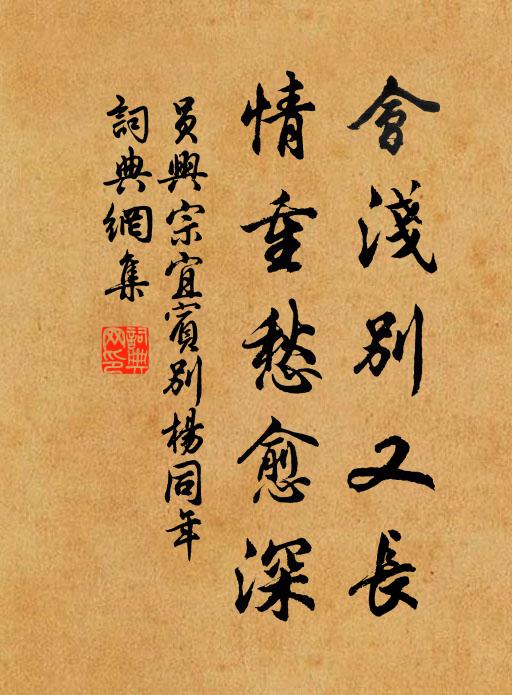 會淺別又長
情重愁愈深
員興宗宜賓別楊同年
詞典網集
詞典网印